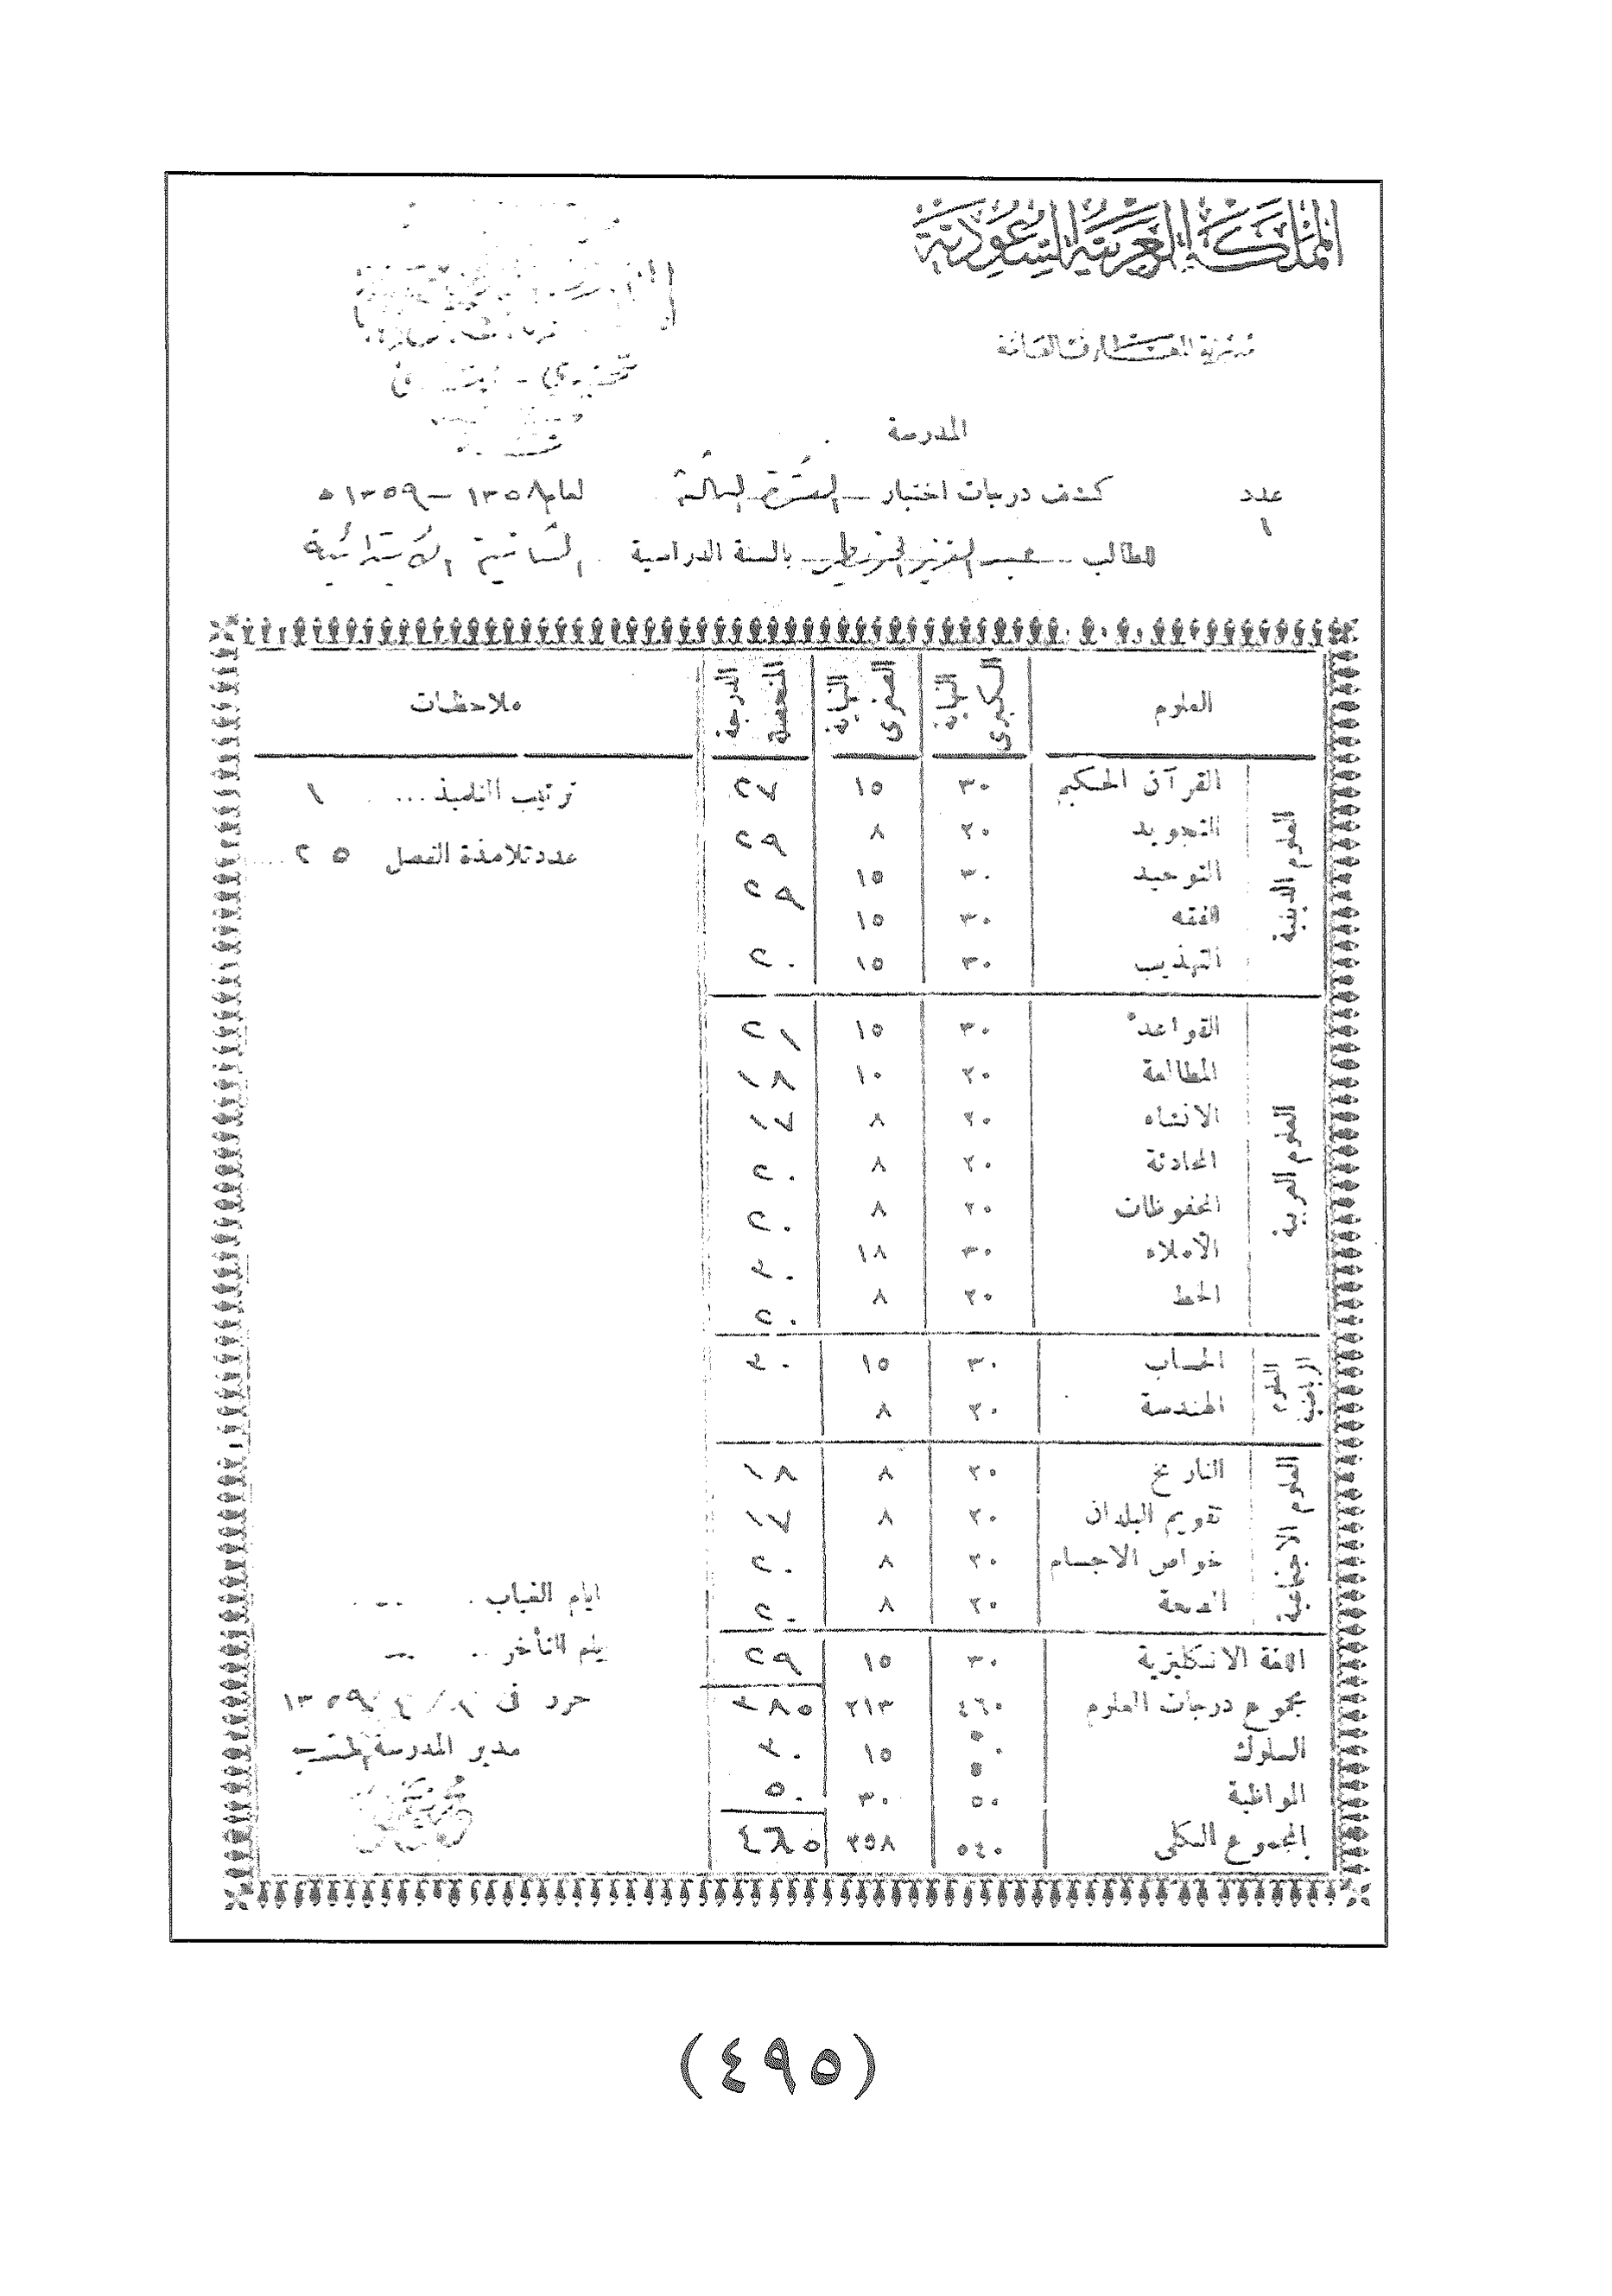 المملكة العربية السعودية
مديرية المعارف العامة
المدرسة
عدد كشف درجات اختبار الفترة الثالثة لعام ١٣٥٨ – ١٣٥٩ ه
١
للطالب عبد العزيز بالسنة الدراسية الثانية الابتدائية
العلوم النهاية الكبرى النهاية الصغرى الدرجة ملاحظات
العلوم الدينية
القرآن الحكيم ٣٠ ١٥ ٢٧ ترتيب التلميذ ... ١
التجويد ٢٠ ٨ ٢٩
عدد تلامذة الفصل ٢٥
التوحيد ٣٠ ١٥ ٢٩
الفقه ٣٠ ١٥
التهذيب ٣٠ ١٥ ٢٠
العلوم العربية
القواعد ٣٠ ١٥ ٢١
المطالعة ٢٠ ١٠ ١٨
الانشاء ٢٠ ٨ ١٧
المحادثة ٢٠ ٨ ٢٠
المحفوظات ٢٠ ٨ ٢٠
الاملاء ٣٠ ١٨ ٣٠
الخط ٢٠ ٨ ٢٠
العلوم الرياضية
الحساب ٣٠ ١٥ ٣٠
الهندسة ٢٠ ٨
العلوم الاجتماعية
التاريخ ٢٠ ٨ ١٨
تقويم البلدان ٢٠ ٨ ١٧
خواص الاجسام ٢٠ ٨ ٢٠
الصحة ٢٠ ٨ ٢٠
ايام الغياب
اللغة الانكليزية ٣٠ ١٥ ٢٩
يلم التأخر
مجموع درجات العلوم ٤٦٠ ٢١٣ ٣٨٥
حرر في ٨ / ٤ / ١٣٥٩
السلوك ١٥ ٣٠
مدير المدرسة
المواظبة ٥٠ ٣٠ ٥٠
المجموع الكلي ٥٤٠ ٢٥٨ ٤٦٥
(٤٩٥)